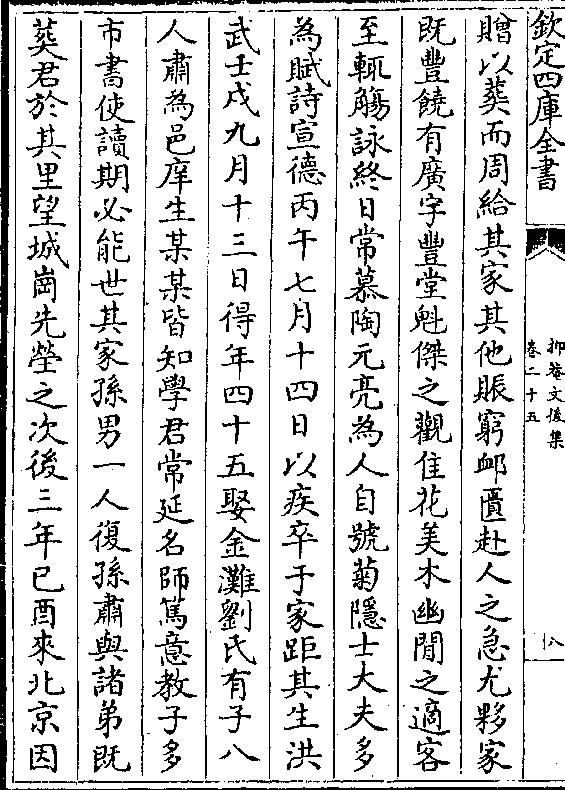 欽定四庫全書
抑菴文後集
卷二十五
八
贈以葬而周給其家其他賑窮邺匱赴人之急尤夥家
既豐饒有廣宇豐堂魁傑之觀佳花美木幽閒之適客
至輒觴詠終日常慕陶元亮為人自號菊隱士大夫多
為賦詩宣德丙午七月十四日以疾卒于家距其生洪
武壬戌九月十三日得年四十五娶金灘劉氏有子八
人肅為邑庠生某某皆知學君常延名師篤意教子多
市書使讀期必能世其家孫男一人復孫肅與諸弟既
葬君於其里望城崗先塋之次後三年已酉來北京因